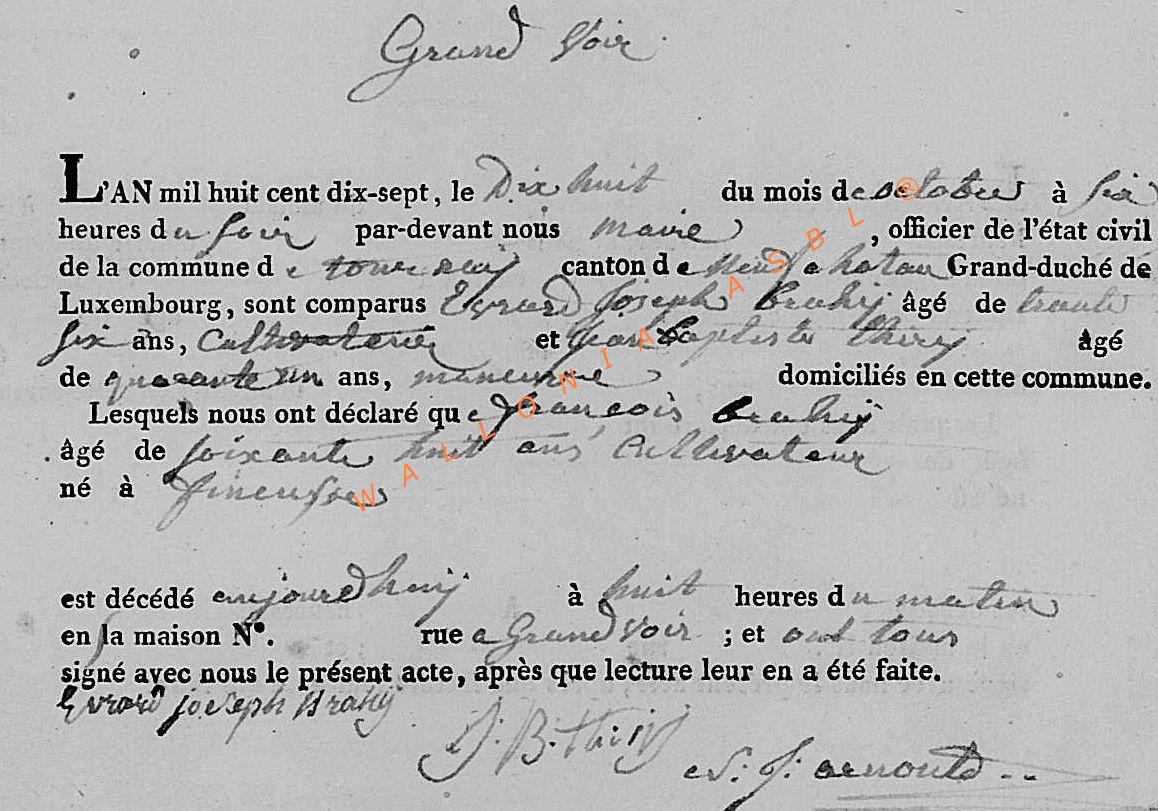 Grand Voir
L'AN mil huit cent dix-sept, le Dix huit du mois de octobre à six
heures du soir par-devant nous maire, officier de l'état civil
de la commune de tournay canton de neufchateau Grand-duché de
Luxembourg, sont comparus Evrard Joseph brahy âgé de trente
six ans, Cultivateur et jean baptiste thiry âgé
de quarante un ans, maneuvre domiciliés en cette commune.
Lesquels nous ont déclaré que françois brahy
âgé de soixante huit ans Cultivateur
né à
est décédé aujourd huy à huit heures du matin
en sa maison N°. rue a Grand voir ; et ont tous
signé avec nous le présent acte, après que lecture leur en a été faite.
Evrard joseph Brahy
J: B: thiry
arnould
WALLONIA ASBL ®